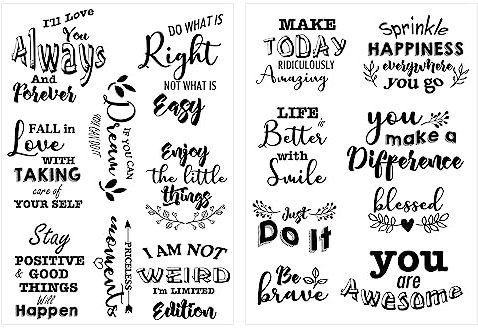 I'll Love
You
Always
And
Forever
DO WHAT IS
Right
NOT WHAT IS
Easy
FALL in
Love
WITH
TAKING
care of
YOUR SELF
IF YOU CAN
Dream
YOU CAN DO IT
Enjoy
the little
things
Stay
POSITIVE
& GOOD
THINGS
Will
Happen
PRICELESS
moments
I AM NOT
WEIRD
I'm LIMITED
Edition
MAKE
TODAY
RIDICULOUSLY
Amazing
Sprinkle
HAPPINESS
everywhere
you go
LIFE
is
Better
with
Smile
you
make a
Difference
Just
Do It
blessed
Be
brave
you
are
Awesome